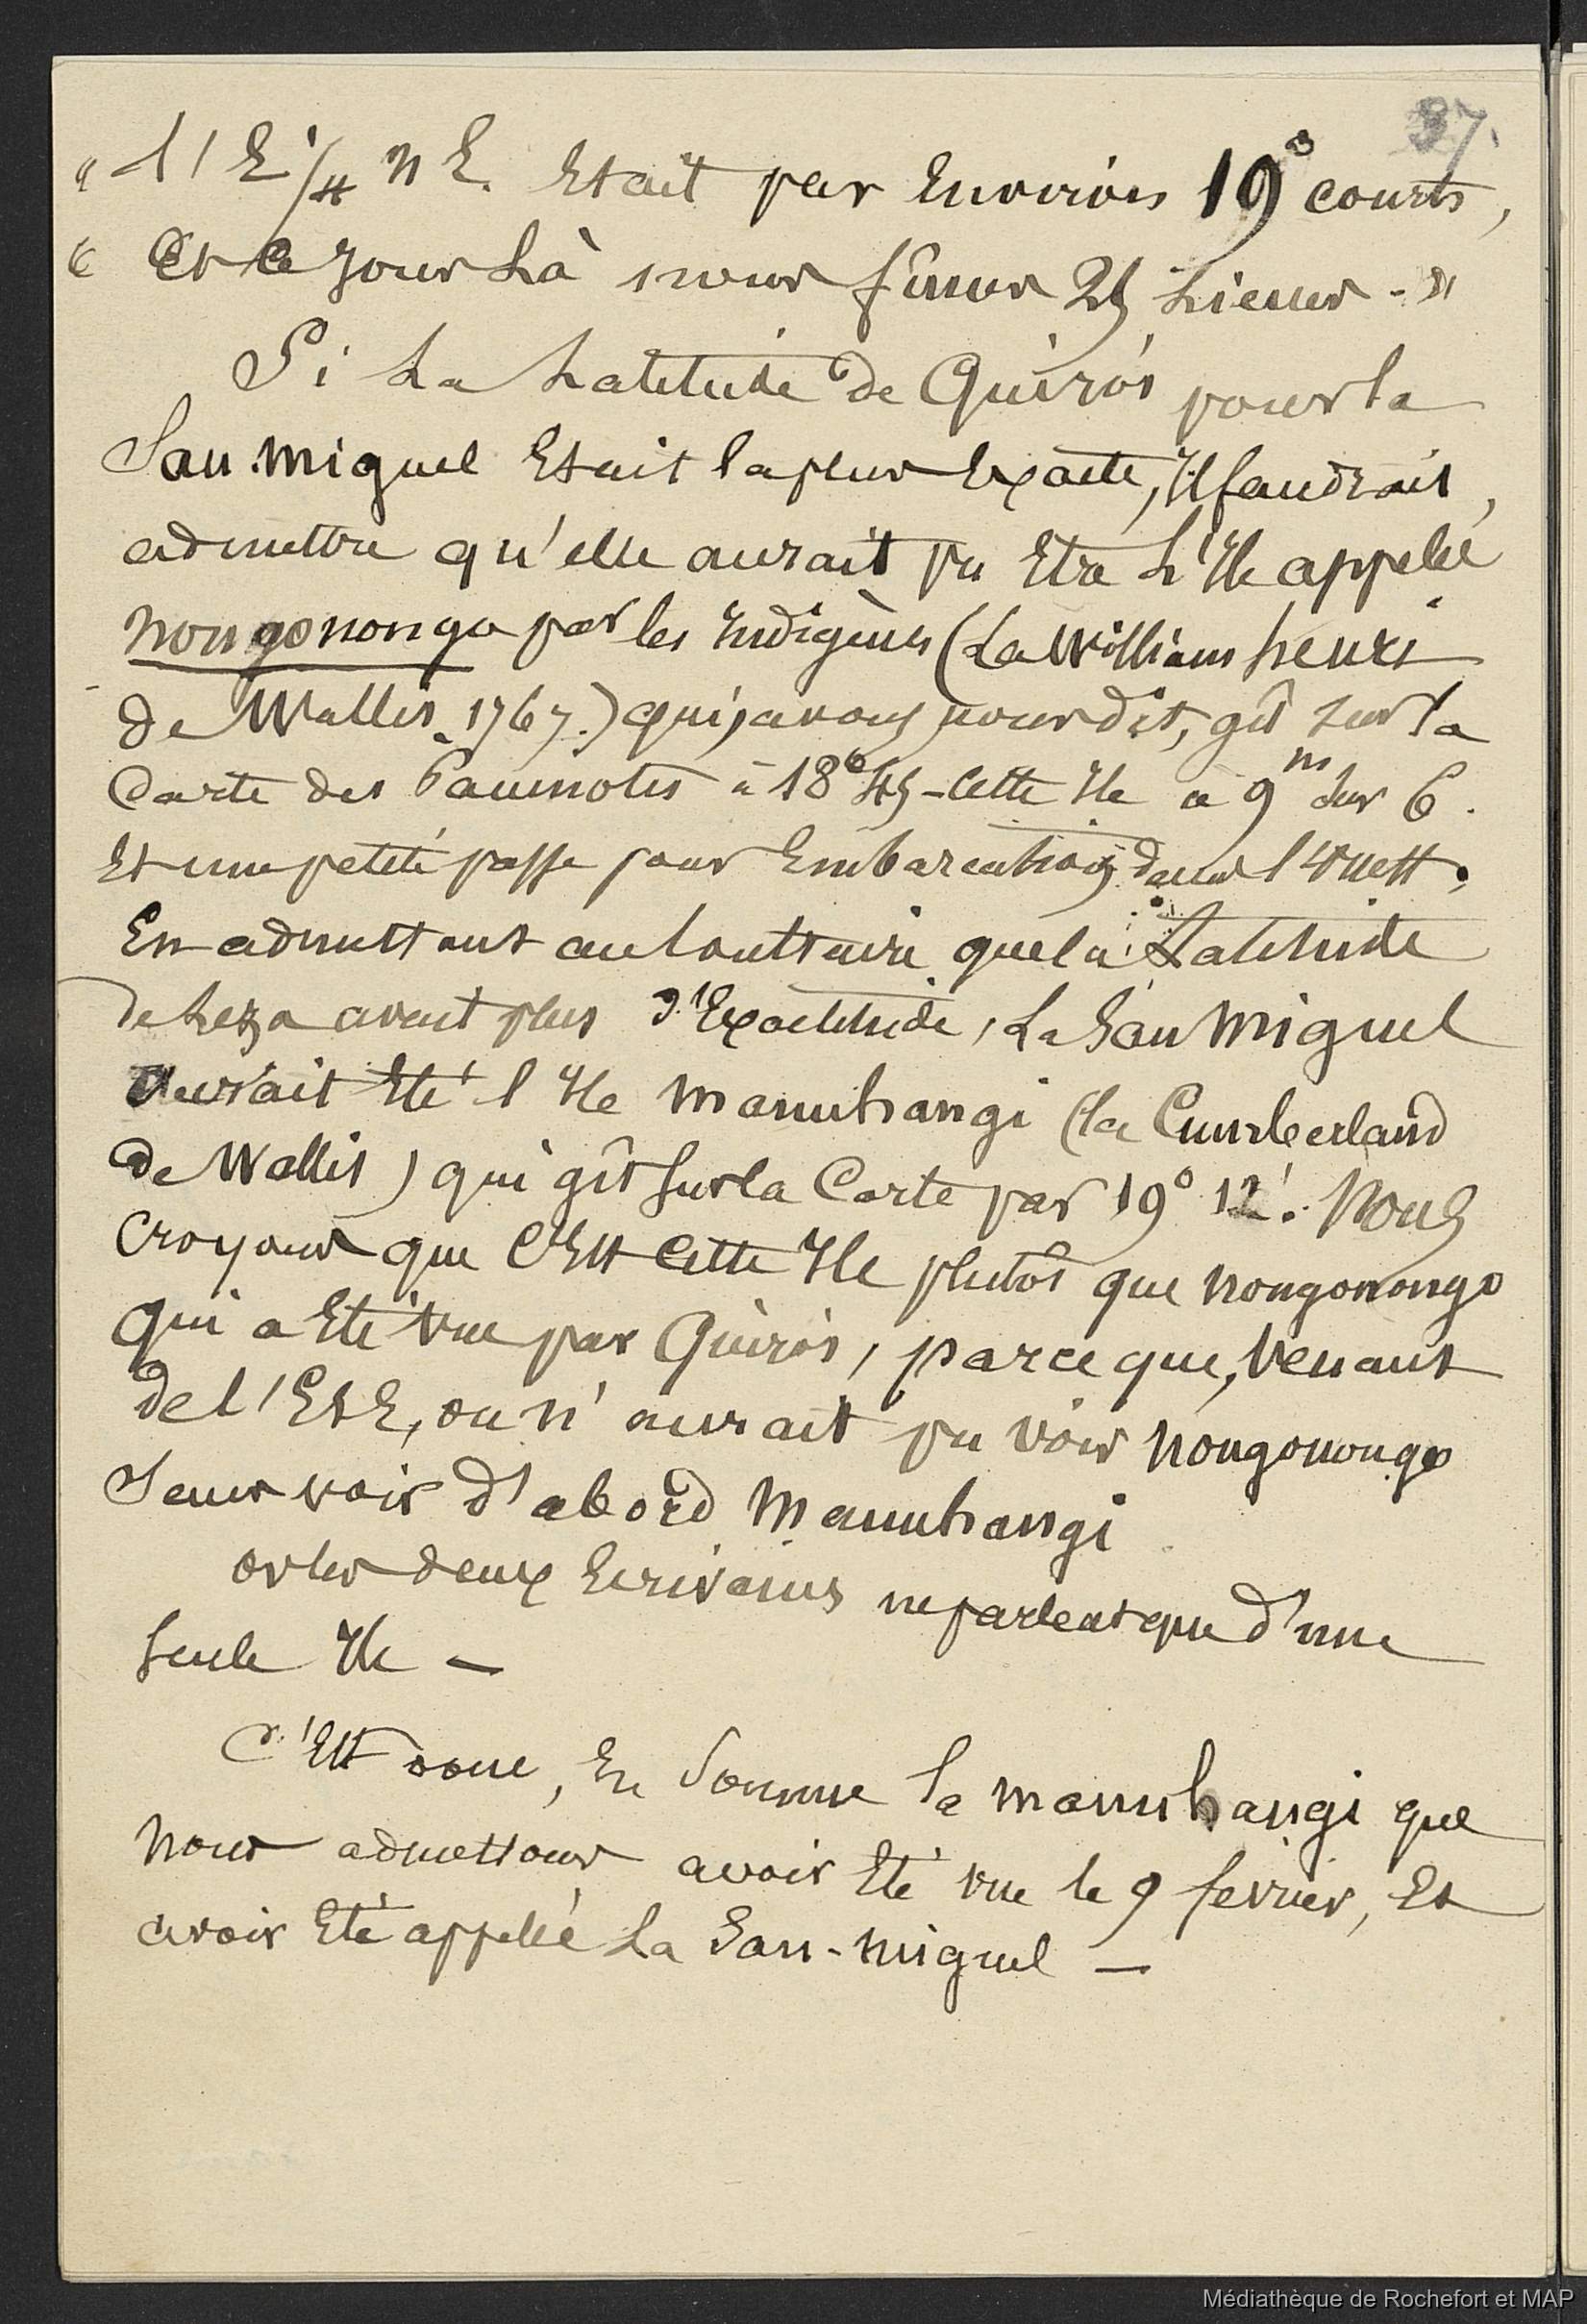 37.
" l'E 1/4 N E. Etait par Environ 19° courts,
" Et ce jour là nous fimes 25 Lieues - "
Si La Latitude de Quiros pour la
San Miguel Etait la plus Exacte, Il faudrait,
admettre qu'elle aurait pu Etre L'Ile appelée
Nongononga par les Indigènes (La William henri
de Wallis 1767.) qui, avons nous dit, gît sur la
Carte des Paumotes à 18° 45 - Cette Ile a 9 m sur 6.
Et une petite passe pour Embarcations dans l'Ouest.
En admettant au Contraire que la Latitude
de Leza avait plus d'Exactitude, La San Miguel
Aurait Eté l'Ile Manuhangi (la Cumberland
de Wallis) qui gît Sur la Carte par 19° 12'. Nous
Croyons que C'Est Cette Ile plutôt que Nongononga
qui a Eté vue par Quiros, parce que, Venant
de l'EsE, on n'aurait pu voir Nongononga
Sans voir d'abord Manuhangi
or les deux Ecrivains ne parlent que d'une
Seule Ile -
C'Est donc, En Somme la Manuhangi que
Nous admettons avoir Eté vue le 9 fevrier, Et
avoir Eté appelée La San-Miguel -
Médiathèque de Rochefort et MAP